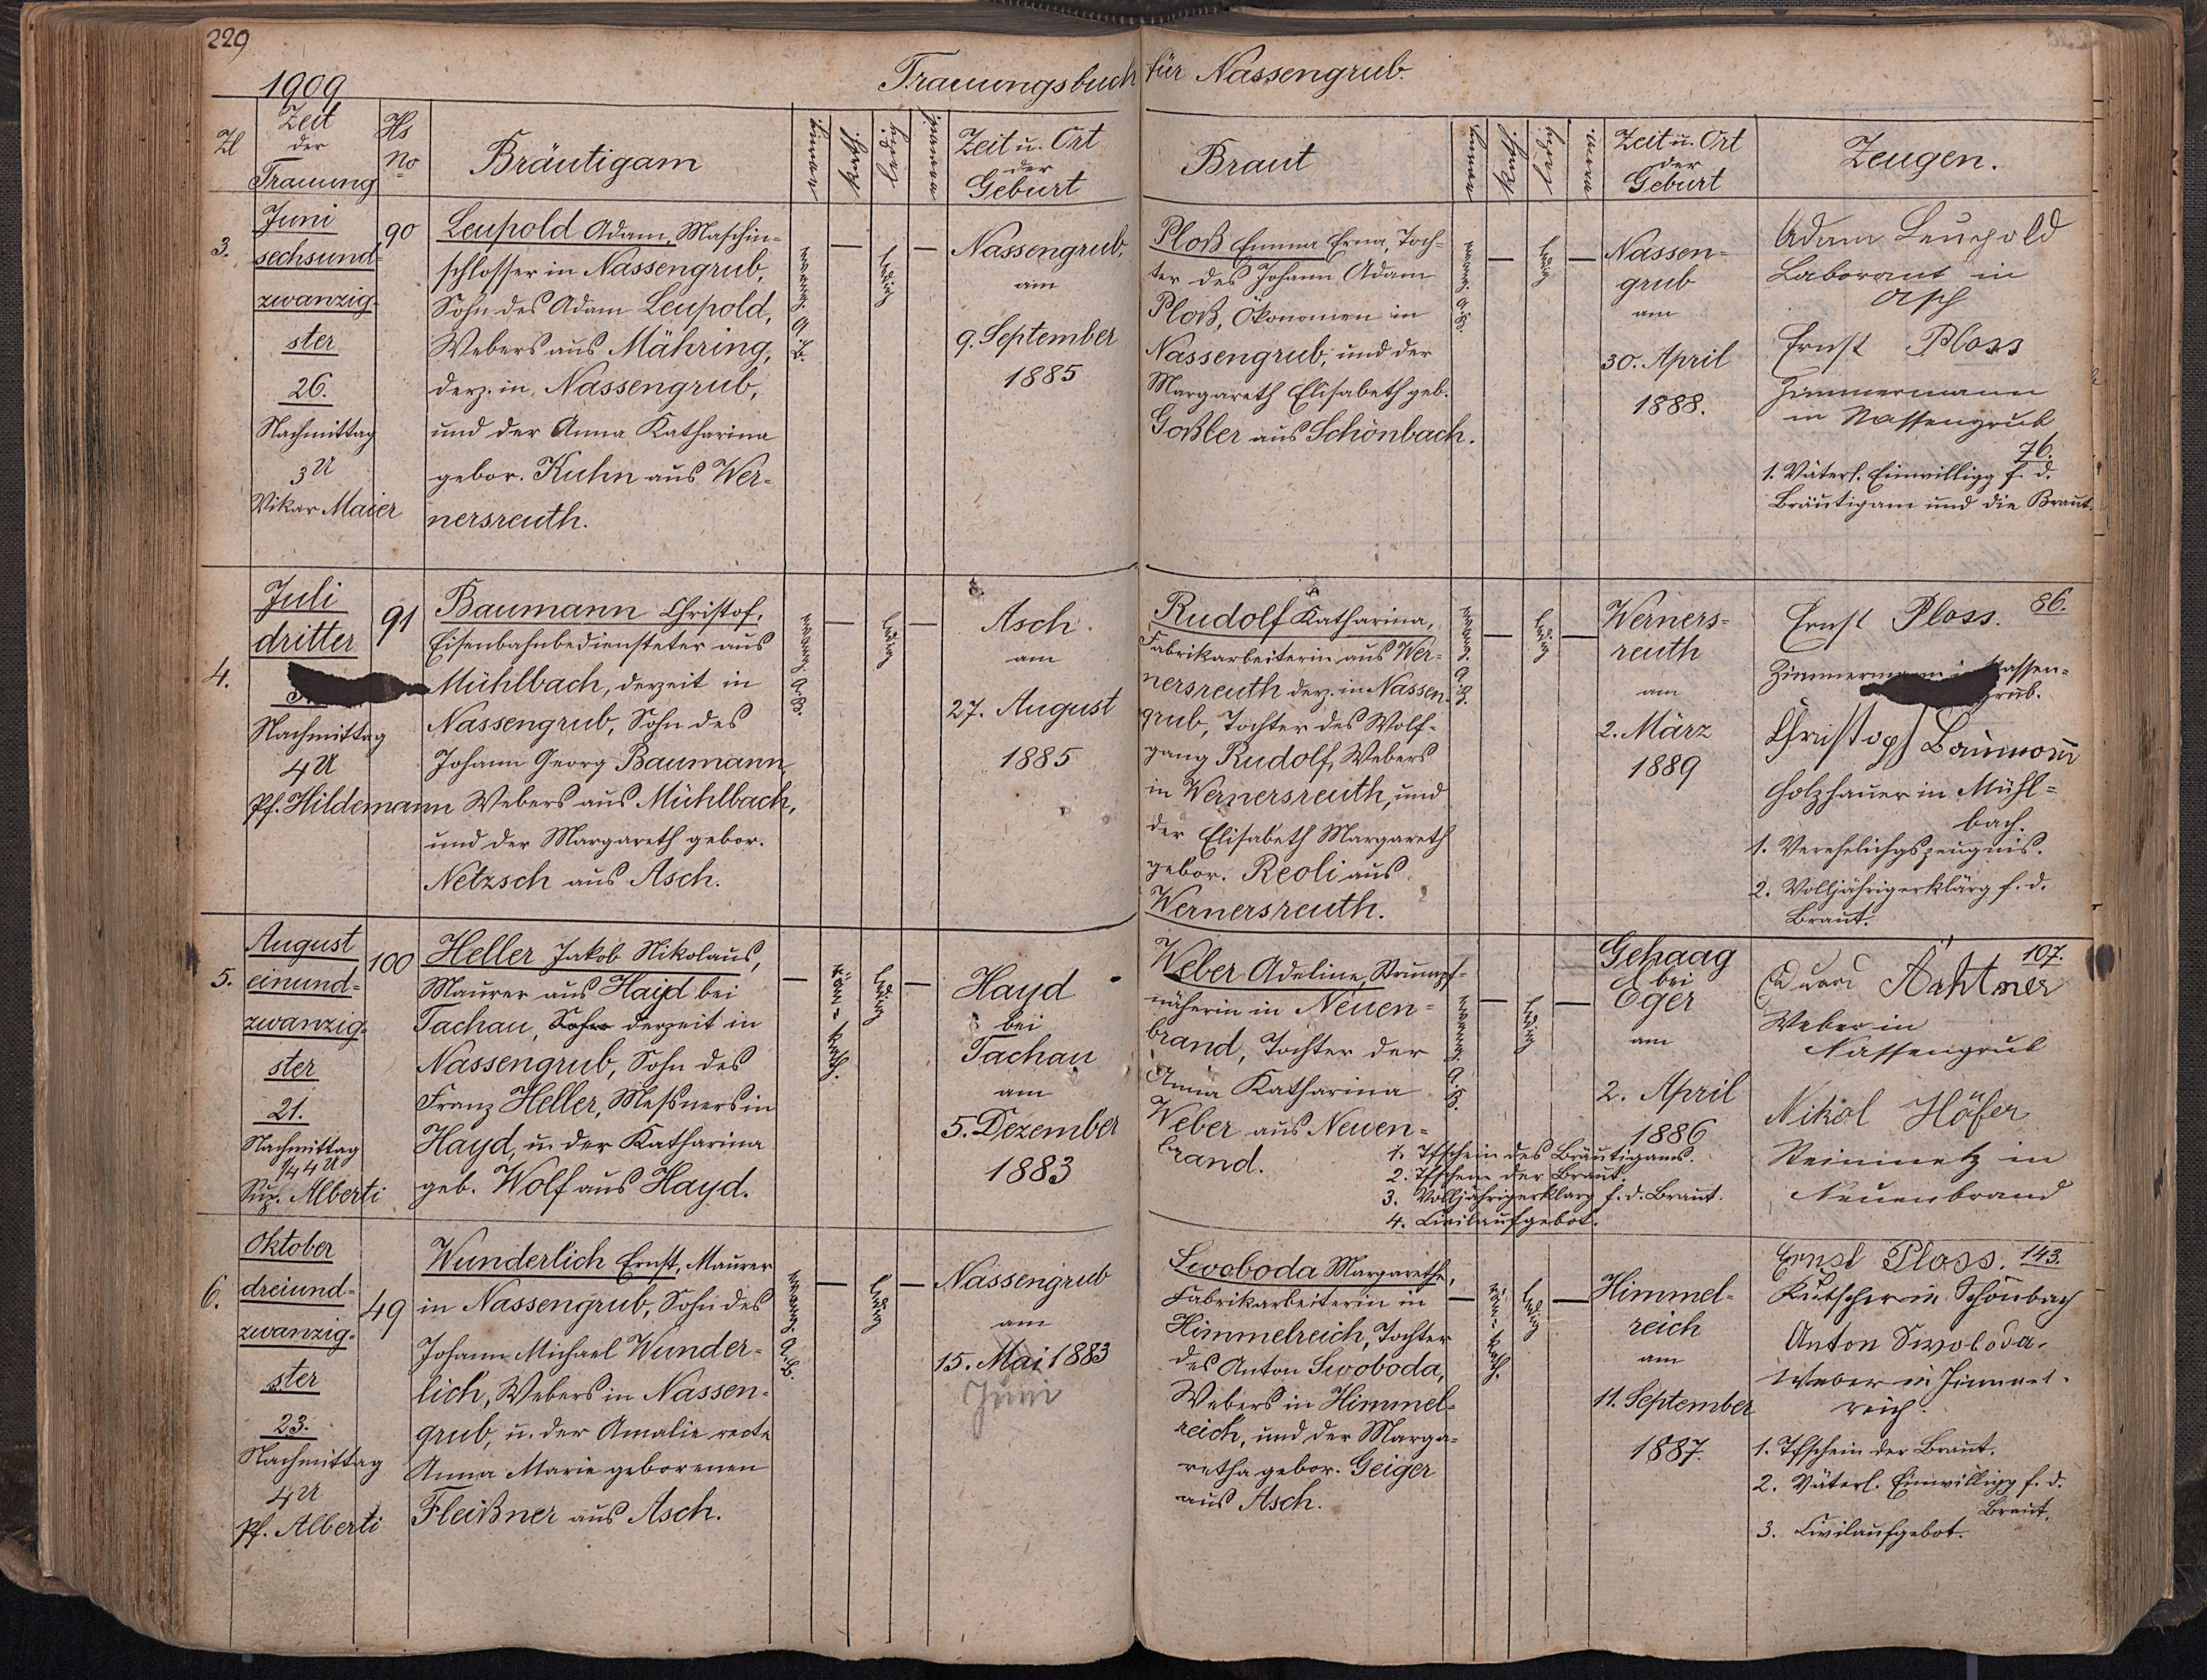 229
1909
Trauungsbuch für Nassengrub.
Zl
Zeit
der
Trauung
Hs
No
Bräutigam
evang.
kath.
ledig
verwit.
Zeit u. Ort
der
Geburt
Braut
evang.
kath.
ledig
Zeit u. Ort
der
Geburt
Zeugen.
3.
Juni
sechsund-
zwanzig-
ster
26.
Nachmittag
3 U
Vikar Maier
90
Leupold Adam, Maschin-
schlosser in Nassengrub,
Sohn des Adam Leupold,
Webers aus Mähring,
derz. in Nassengrub,
und der Anna Katharina
gebor. Kuhn aus Wer-
nersreuth.
evang. A. B.
—
ledig
—
Nassengrub,
am
9. September
1885
Ploß Emma Erna, Toch-
ter des Johann Adam
Ploß, Ökonomen in
Nassengrub, und der
Margareth Elisabeth geb.
Goßler aus Schönbach.
evang. A. B.
—
ledig
—
Nassen-
grub
am
30. April
1888.
Adam Leupold
Laborant in
Asch
Ernst Ploss
Zimmermann
in Nassengrub
76.
1. Väterl. Einwilligg f. d.
Bräutigam und die Braut.
4.
Juli
dritter
Nachmittag
4 U
Pf. Hildemann
91
Baumann Christof,
Eisenbahnbediensteter aus
Mühlbach, derzeit in
Nassengrub, Sohn des
Johann Georg Baumann
Webers aus Mühlbach,
und der Margareth gebor.
Netzsch aus Asch.
evang. A. B.
—
ledig
—
Asch.
am
27. August
1885
Rudolf Katharina,
Fabrikarbeiterin aus Wer-
nersreuth derz. in Nassen-
grub, Tochter des Wolf-
gang Rudolf, Webers
in Wernersreuth, und
der Elisabeth Margareth
gebor. Reoli aus
Wernersreuth.
evang. A. B.
—
ledig
—
Werners-
reuth
am
2. März
1889
86.
Ernst Ploss.
Zimmermann in Nassen-
grub.
Christoph Baumann
Holzhauer in Mühl-
bach.
1. Verehelichgszeugnis.
2. Volljährigerklärg f. d.
Braut.
5.
August
einund-
zwanzig-
ster
21.
Nachmittag
3/4 4 U
Sup. Alberti
100
Heller Jakob Nikolaus,
Maurer aus Hayd bei
Tachau, Sohn derzeit in
Nassengrub, Sohn des
Franz Heller, Meßners in
Hayd, u. der Katharina
geb. Wolf aus Hayd.
—
röm.-kath.
ledig
—
Hayd
bei
Tachau
am
5. Dezember
1883
Weber Adeline, Strumpf-
näherin in Neuen-
brand, Tochter der
Anna Katharina
Weber aus Neuen-
brand.
evang. A. B.
—
ledig
—
Gehaag
bei
Eger
am
2. April
1886
1. Tfschein des Bräutigams.
2. Tfschein der Braut.
3. Volljährigerklärg f. d. Braut.
4. Civilaufgebot.
107.
Eduard Achtner
Weber in
Nassengrub
Nikol Höfer
Steinmetz in
Neuenbrand
6.
Oktober
dreiund-
zwanzig-
ster
23.
Nachmittag
4 U
Pf. Alberti
49
Wunderlich Ernst, Maurer
in Nassengrub, Sohn des
Johann Michael Wunder-
lich, Webers in Nassen-
grub, u. der Amalie recte
Anna Marie geborenen
Fleißner aus Asch.
evang. A. B.
—
ledig
—
Nassengrub
am
15. Mai 1883
Juni
Swoboda Margarethe,
Fabrikarbeiterin in
Himmelreich, Tochter
des Anton Swoboda,
Webers in Himmel-
reich, und der Marga-
retha gebor. Geiger
aus Asch.
—
röm.-kath.
ledig
—
Himmel-
reich
am
11. September
1887.
Ernst Ploss. 143.
Kutscher in Schönbach
Anton Swoboda.
Weber in Himmel-
reich.
1. Tfschein der Braut.
2. Väterl. Einwilligg f. d.
Braut.
3. Civilaufgebot.